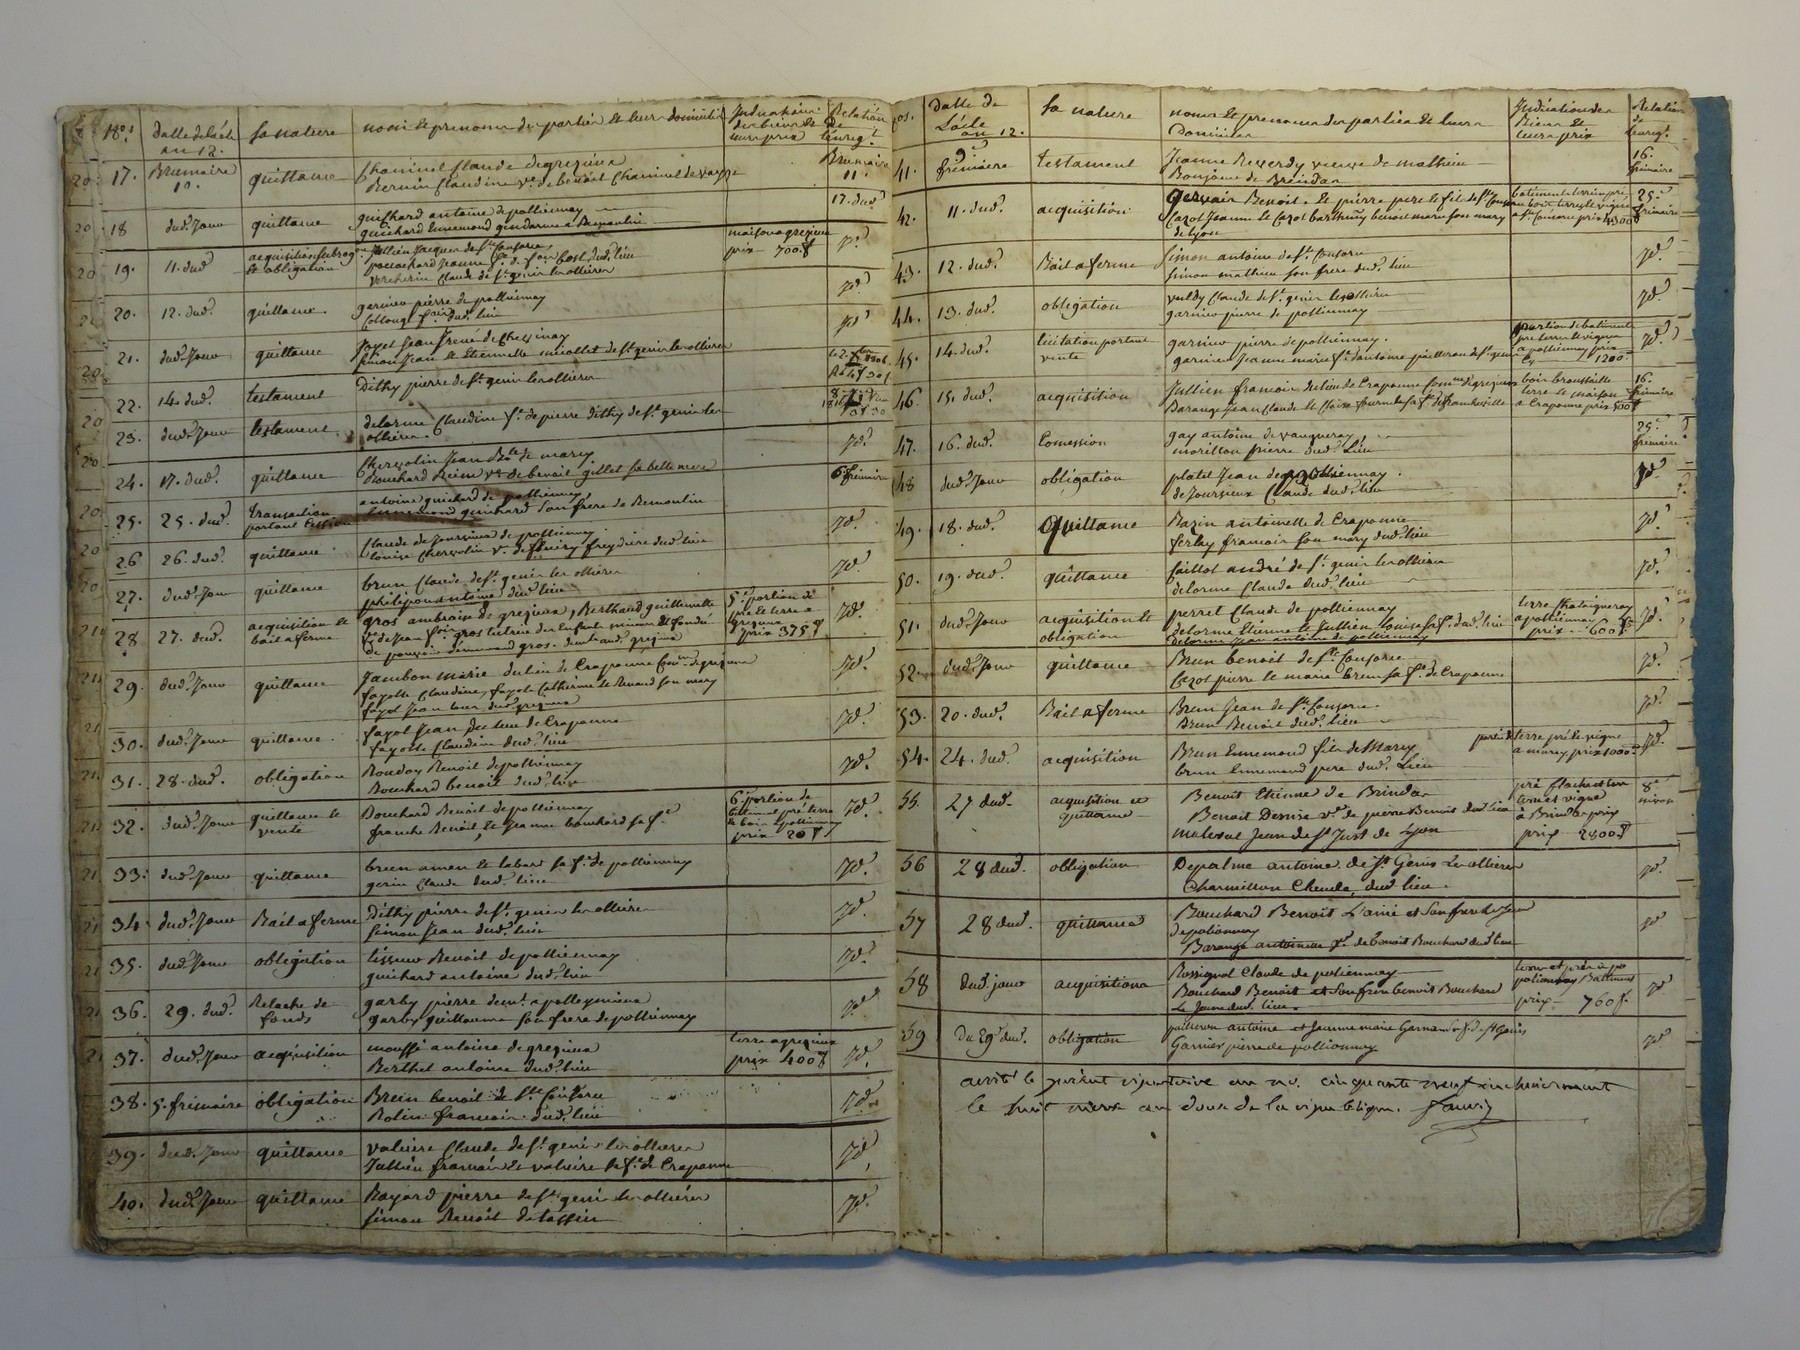 Nos. datte de l'acte an 12. sa nature noms et prenoms des parties et leurs domiciles Indication des biens et leurs prix Relation de l'enregt.
17. Brumaire 10. quittance Chaminel Claude de grezieu Brumaire 11.
Bernin Claudine ve. de benoit Chaminel de vaugne
18 dud. Jour quittance guichard antoine de pollionnay 17. dud.
guichard Ennemond gendarme a Remoulin
19. 11. dud acquisition subrog. Jullien Jacques de Ste Consorce maison a grezieu jd.
et obligation jeanne fe. de dud. lieu prix 700.f
Claude de St genis les ollieres
20. 12. dud. quittance. garnier pierre de pollionnay jd.
dud. lieu
21. dud. Jour quittance fayet Jean jrené de Chevinay jd.
simon Jean et Etiennette de St. genis les ollieres
22. 14. dud. testament Dithy pierre de St. genis les ollieres
23. dud. Jour testament delorme Claudine fe. de pierre dithy de St. genis les
ollieres.
24. 17. dud. quittance Chervolin Jean Bte. de marcy. jd.
Bouchard Reine ve. de benoit gillet sa belle mere
25. 25. dud. transaction antoine guichard de pollionnay 6 frimaire
portant Cession Ennemond guichard son frere de Remoulin
26 26. dud. quittance Claude de Joursieux de pollionnay jd.
louise Chervolin ve. de fleury freydiere dud. lieu
27. dud. Jour quittance brun Claude de St. genis les ollieres jd.
philipon antoine dud. lieu
28 27. dud. acquisition et gros ambroise de grezieu, Berthaud guillemette 5e. portion de jd.
bail a ferme ve. de Jean gros tutrice des Enfants mineurs et fondé pré et terre a grezieu
de pouvoir d'ennemond gros. demt. aud. grezieu prix 375 f
29. dud. Jour quittance Jambon marie du lieu de Craponne Comne. de grezieu jd.
fayolle Claudine, fayolle Catherine et Renaud son mary
fayol Jean tous dud. grezieu
30. dud. Jour quittance. fayol Jean du lieu de Craponne jd.
fayolle Claudine dud. lieu
31. 28. dud. obligation Bouchard Benoit de pollionnay jd.
Bouchard benoit dud. lieu
32. dud. Jour quittance et Bouchard Benoit de pollionnay 6e. portion de jd.
vente franche Benoit, et Jeanne bouchard sa fe. batiment pré terre
et bois a pollionnay
prix 20 f
33. dud. Jour quittance brun amen et labard sa fe. de pollionnay jd.
gerin Claude dud. lieu
34. dud. Jour Bail a ferme Dithy pierre de St. genis les ollieres jd.
simon Jean dud. lieu
35. dud. Jour obligation tisseur Benoit de pollionnay jd.
guichard antoine dud. lieu
36. 29. dud. Relache de garby pierre demt. a jd.
fonds garby guillaume son frere de pollionnay
37. dud. Jour acquisition mouffé antoine de grezieu terre a grezieu jd.
Berthet antoine dud. lieu prix 400 f
38. 5. frimaire obligation Brun benoit de Ste Consorce jd.
Bolin francois dud. lieu
39. dud. Jour quittance valuire Claude de St. genis les ollieres jd.
Jullien francois et valuire sa fe. de Craponne
40. dud. Jour quittance Bayard pierre de St. genis les ollieres jd.
simon Benoit de tassin
Nos. Datte de L'acte an 12. sa nature noms et prenoms des parties et leurs Domiciles Indication des Biens et leurs prix Relation de l'enregt.
41. 9. frimaire testament Jeanne Reverdy veuve de mathieu 16. frimaire
Bonjour de Brindas
42. 11. dud. acquisition gervais Benoit et pierre pere et fils de Ste Consorce 25. frimaire
Cazot Jeanne et Cazot Barthmy benoit marie son mary a Ste Consorce prix 4300 f
de Lyon
43. 12. dud. Bail a ferme simon antoine de Ste. Consorce jd.
simon mathieu son frere dud. lieu
44. 13. dud. obligation Claude de St. genis les ollieres jd.
garnier pierre de pollionnay
45. 14. dud. licitation portant garnier pierre de pollionnay. portion de batiment jd.
vente garnier Jeanne marie fe. d'antoine de St. genis pré terre et vigne a pollionnay prix 1200 f
46. 15. dud. acquisition Jullien francois du lieu de Craponne Comne. de grezieu bois broussaille 16. frimaire
Barange Jean Claude et Claire sa fe. de francheville terre et maison a Craponne prix 500 f
47. 16. dud. Concession gay antoine de vaugneray 25. frimaire
morillon pierre dud. Lieu
48 dud. Jour obligation platel Jean de pollionnay. jd.
de Joursieux Claude dud. lieu
49. 18. dud. quittance Bazin antoinette de Craponne jd.
ferlay francois son mary dud. lieu
50. 19. dud. quittance Caillot andré de St. genis les ollieres jd.
delorme Claude dud. lieu
51. dud. Jour acquisition et perret Claude de pollionnay terre Chataigneray jd.
obligation delorme Etienne et Jullien louise sa fe. dud. lieu a pollionnay
delorme Jean antoine de pollionnay prix 600 f
52. dud. Jour quittance Brun benoit de Ste Consorce jd.
Cazot pierre et marie brun sa fe. de Craponne
53. 20. dud. Bail a ferme Brun Jean de Ste Consorce. jd.
Brun Benoit dud. lieu
54. 24. dud. acquisition Brun Ennemond fils de Marcy partie de terre pré et vigne jd.
brun Ennemond pere dud. Lieu a marcy prix 1000 f
55. 27 dud. acquisition et Benoit Etienne de Brindas 8e nivose
quittance Benoit Denise ve. de pierre Benoit dud. lieu terre et vigne
Materal Jean de St Just de Lyon à Brindas prix
prix 2800 f
56 28 dud. obligation Depalme antoine de St Genis Les ollieres jd.
Charmillon Claude, dud. lieu.
57 28 dud. quittance Bouchard Benoit L'ainé et son frere le jeune jd
de polionnay
Barange antoinette ve. de benoit Bouchard dud. lieu
58 dud. jour acquisition Rossignol Claude de polionnay jd
Bouchard Benoit et son frere benoit Bouchard
Le Jeune dud. lieu. prix 760 f.
59 Du 29 dud. obligation antoine et Jeanne marie Garnier sa f. de St Genis jd
Garnier pierre de pollionnay
arrêté le present repertoire au no. cinquante neuf inclusivement
le huit nivose an douze de la republique.